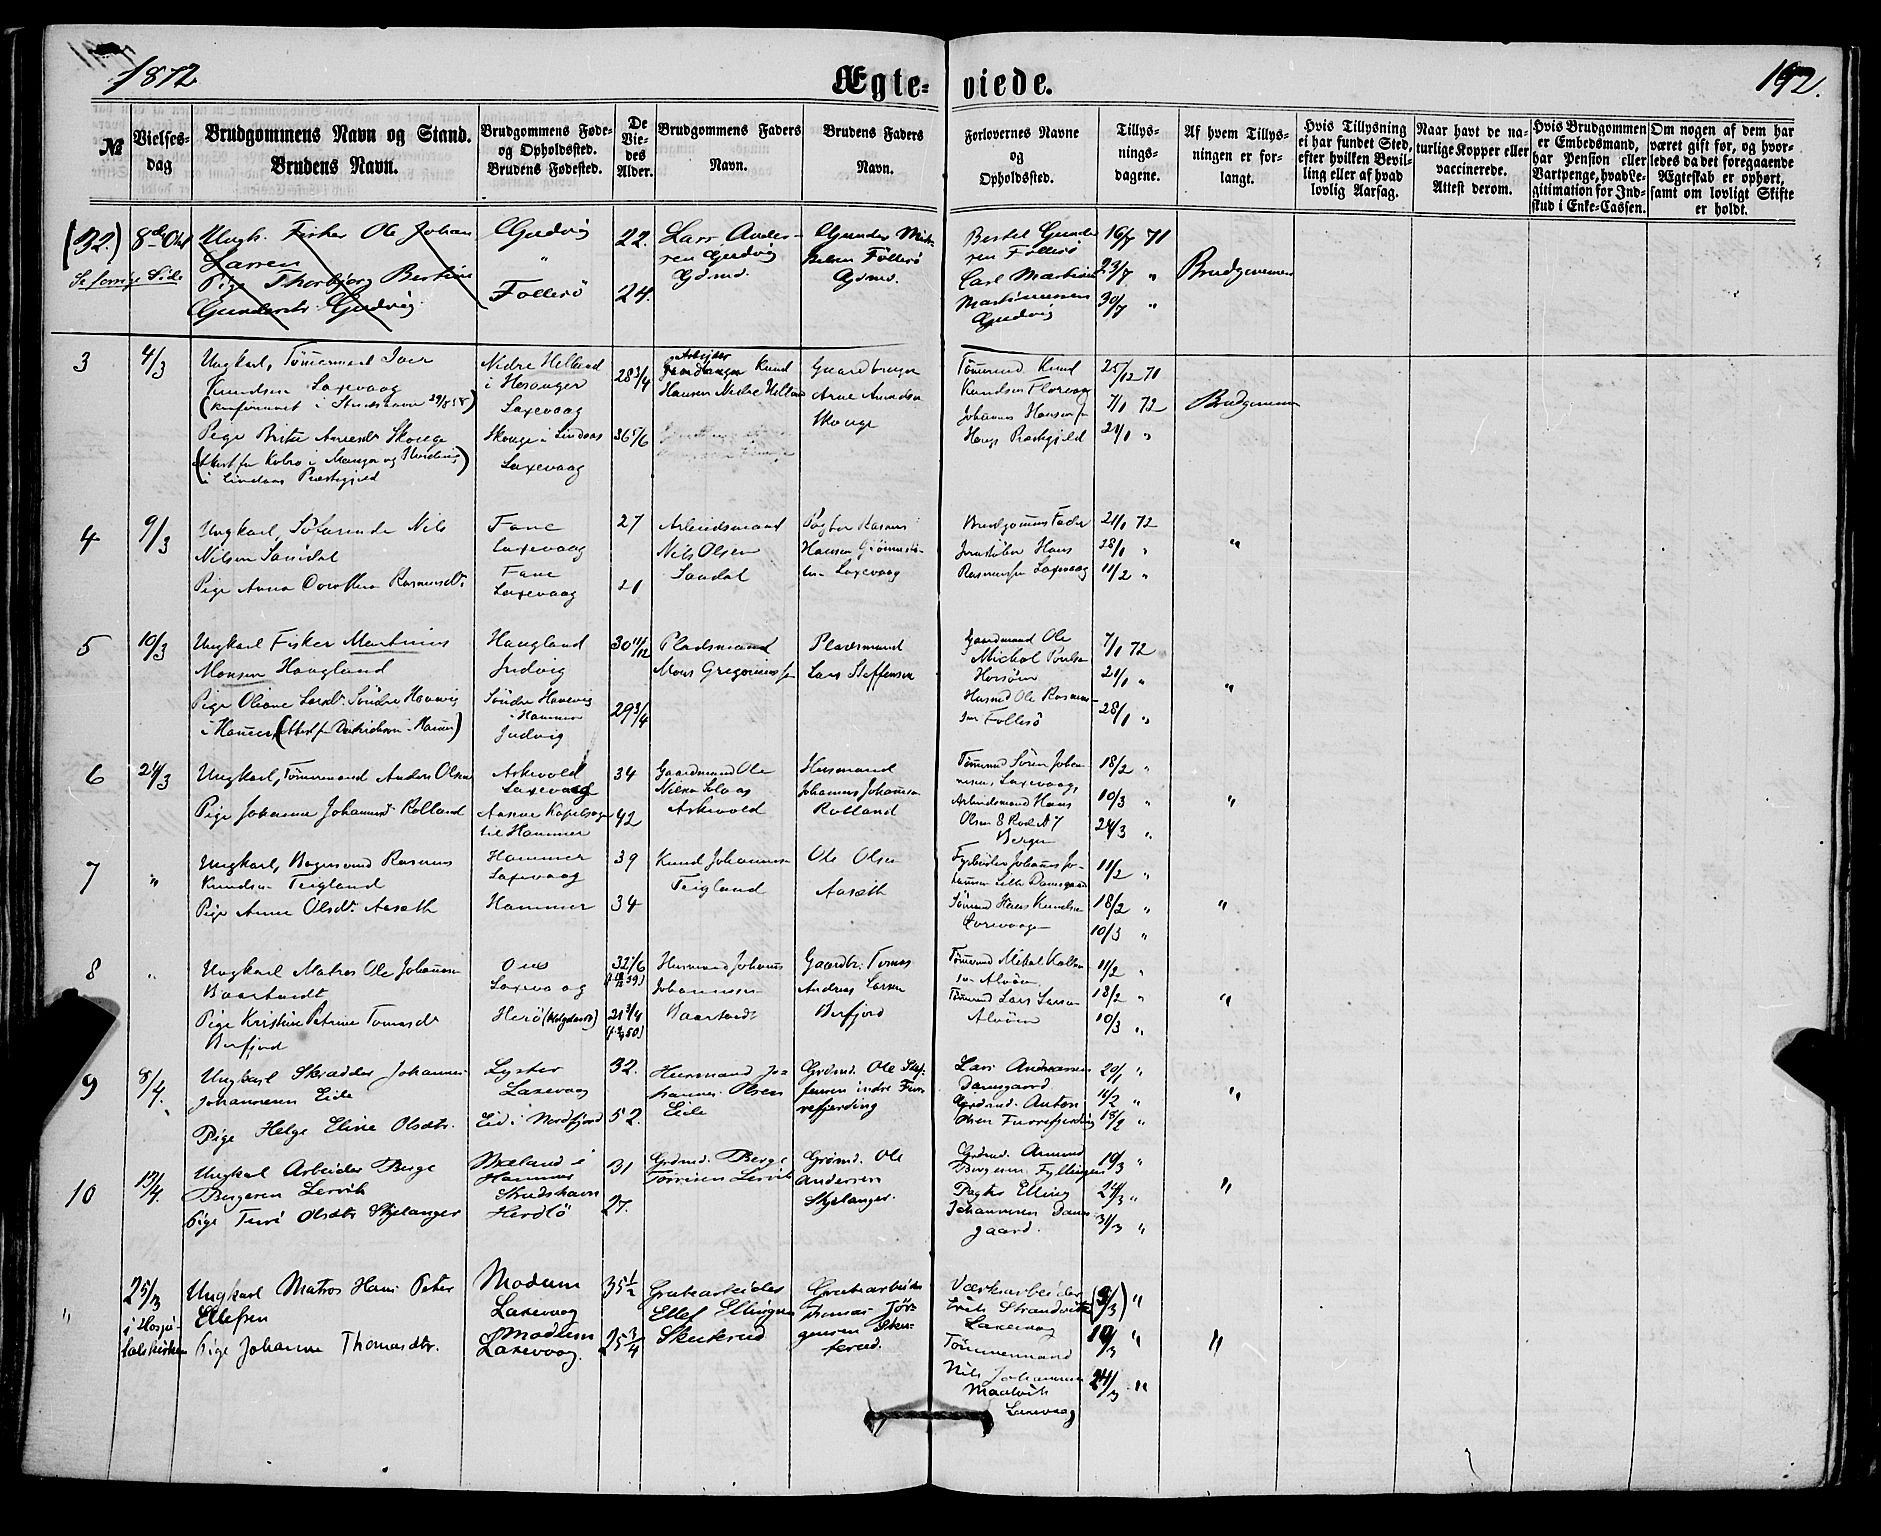 1872
Ægte-
viede.
192.
№
Vielses-
dag
Brudgommens Navn og Stand.
Brudens Navn.
Brudgommens Føde-
og Opholdsted.
Brudens Fødested.
De
Vie-
des
Alder.
Brudgommens Faders
Navn.
Brudens Faders
Navn.
Forlovernes Navne
og
Opholdsted.
Tillys-
nings-
dagene.
Af hvem Tillys-
ningen er for-
langt.
Hvis Tillysning
ei har fundet Sted,
efter hvilken Bevil-
ling eller af hvad
lovlig Aarsag.
Naar havt de na-
turlige Kopper eller
vaccinerede.
Attest derom.
Hvis Brudgommen
er Embedsmand,
har Pension eller
Vartpenge, hvad Le-
gitimation for Ind-
skud i Enke-Cassen.
Om nogen af dem har
været gift før, og hvor-
ledes da det foregaaende
Ægteskab er ophørt,
samt om lovligt Skifte
er holdt.
(32.)
Se forrige Side
Ungk. Fisker Ole Johan
Larsen
Pige Thorbjørg Bertine
Gundersdr. Gudvig
Gudvig
"
Follesö
22.
24.
Lars Ander-
sen Gudvig
Gdmd.
Follesö
Gdmd.
Bertel Gunder-
sen Follesö
Carl Martin
Martinussen
Gudvig
16/7 71
23/7 "
30/7 "
Brudgommen
3
4/3
Ungkarl, Tömermand Iver
Knudsen Laxevaag
(konfirmeret i Strudshavn
Pige Brita Arnesdr. Skouge
i Lindaas Præstegjeld
Nedre Helland
i Hosanger
Laxevaag
Skouge i Lindaas
Laxevaag
28 3/4
36 5/6
Arbeider
Knud
Hansen Nedre Helland
Gaardbruger
Arne
Skouge
Tömmermd Knud
Knudsen Florvaag
Johannes Hansen
Præstgjeld
25/12 71
7/1 72
21/1 "
Brudgommen
4
9/3
Ungkarl, Söfarende Nils
Nilsen Sandal
Pige Anna Dorothea Rasmusdr.
Fane
Laxevaag
Fane
Laxevaag
27
21
Arbeidsmand
Nils Olsen
Sandal
Hansen
Laxevaag
Brudgommens Fader
Hans
Rasmussen Laxevaag
21/1 72
28/1 "
11/2 "
"
5
10/3
Ungkarl Fisker Martinus
Monsen Haugland
Pige Oliane Larsdr. Söndre Hanevig
i Hammer
Haugland
Judvig
Söndre Hanevig
i Hammer
Judvig
30 11/12
29 3/4
Pladsmand
Mons Gregoriussen
Pladsmand
Lars Steffensen
Gaardmand Ole
Michal Poulsen
Horsöen
Husmd Ole Rasmus-
sen Follesö
7/1 72
21/1 "
28/1 "
"
6
24/3
Ungkarl, Tömmermand Anders Olsen
Pige Johanne Johannesdr. Rolland
Askevold
Laxevaag
Aasene Kapelsogn
til Hammer
34
42
Gaardmand Ole
Nilsen
Askevold
Husmand
Johannes Johannesen
Rolland
Tömmermd Sören Johan-
nesen, Laxevaag
Arbeidsmand Hans
Olsen 8 Rode № 7
Bergen
18/2 "
10/3 "
24/3 "
"
7
"
Ungkarl, Rasmus
Knudsen Teigland
Pige Anne Olsdr. Aaseth
Hammer
Laxevaag
Hammer
39
34
Knud Johannesen
Teigland
Ole Olsen
Aaseth
Johannes Jo-
hannesen Lille Damsgaard
Tömmermd Hans Knudsen
Laxevaag
11/2 "
18/2 "
10/3 "
"
8
"
Ungkarl Matros Ole Johannesen
Baartvedt
Pige Kristine Petrine Tomasdr.
Berfjord
Os
Laxevaag
Herö (Helgeland)
32 1/6
21 3/4
Husmand Johannes
Johannesen
Baartvedt
Gaardbr. Tomas
Andreas Larsen
Berfjord
Tömmermd Mikal
Alvöen
Tömmermd Lars Larsen
Alvöen
11/2 "
18/2 "
10/3 "
"
9
8/4.
Ungkarl Skrædder Johannes
Johannesen Eide
Pige Helge Eline Olsdtr.
Lyster
Laxevaag
Eid i Nordfjord
32.
52.
Huusmand Jo-
hannes Olsen
Eide
Grdmd. Ole Stef-
fensen indre Fur-
refjerding
Lars Andreassen
Damsgaard
Grdmd. Anton
Olsen Furrefjerding
20/1 "
11/2 "
18/2 "
"
10
13/4.
Ungkarl Arbeider Berge
Bergesen Lervik
Pige Turi Olsdtr Skjelanger
Mæland i
Hammer
Strudshavn
Herdlö
31
27.
Grdmd. Berge
Lervik
Grdmd. Ole
Andersen
Skjelanger.
Grdmd. Amund
Bergesen Fyllingen
Pagter Elling
Johannesen Dams-
gaard.
10/3 "
24/3 "
31/3 "
"
"
25/3
i Hospi-
talskirken
Ungkarl Matros Hans Peter
Ellefsen
Pige Johanne Thomasdtr.
Modum
Laxevaag
Modum
Laxevaag.
35 1/2
25 3/4
Grubearbeider
Ellef Ellingsen
Skuterud
Grubearbeider
Thomas Jör-
gensen Sku-
terud.
Værkarbeider
Erik Strandvik
Laxevaag
Tömmermand
Nils Johannesen
Laxevaag
(3/3) "
10/3 "
24/3 "
"